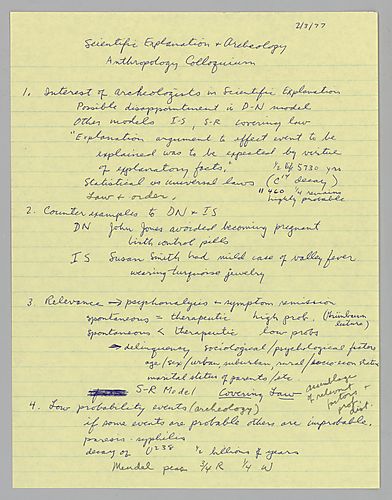 2/3/77
Scientific Explanation & Archeology
Anthropology Colloquium
1. Interest of Archeologists in Scientific Explanation
Possible disappointment in D-N model
Other models I-S, S-R covering law
"Explanation argument to effect event to be
explained was to be expected by virtue
of explanatory facts."
1/2 life 5730 yrs
Statistical vs universal laws (C14 decay)
Law & order.
11,460 1/4 remains
highly probable
2. Counter examples to DN & IS
DN John Jones avoided becoming pregnant
birth control pills
IS Susan Smith had mild case of valley fever
wearing turquoise jewelry
3. Relevance → psychoanalysis & symptom remission
spontaneous = therapeutic high prob. (Grünbaum
lecture)
spontaneous < therapeutic low probs
→ delinquency sociological/psychological factors
age/sex/urban, suburban, rural/socio-econ status
marital status of parents/etc.
S-R Model Covering Law
assemblage
of relevant
factors &
prob.
dist.
4. Low probability events (archeology)
if some events are probable others are improbable.
paresis-syphilis
decay of U238 1/2 billions of years
Mendel peas 3/4 R 1/4 W